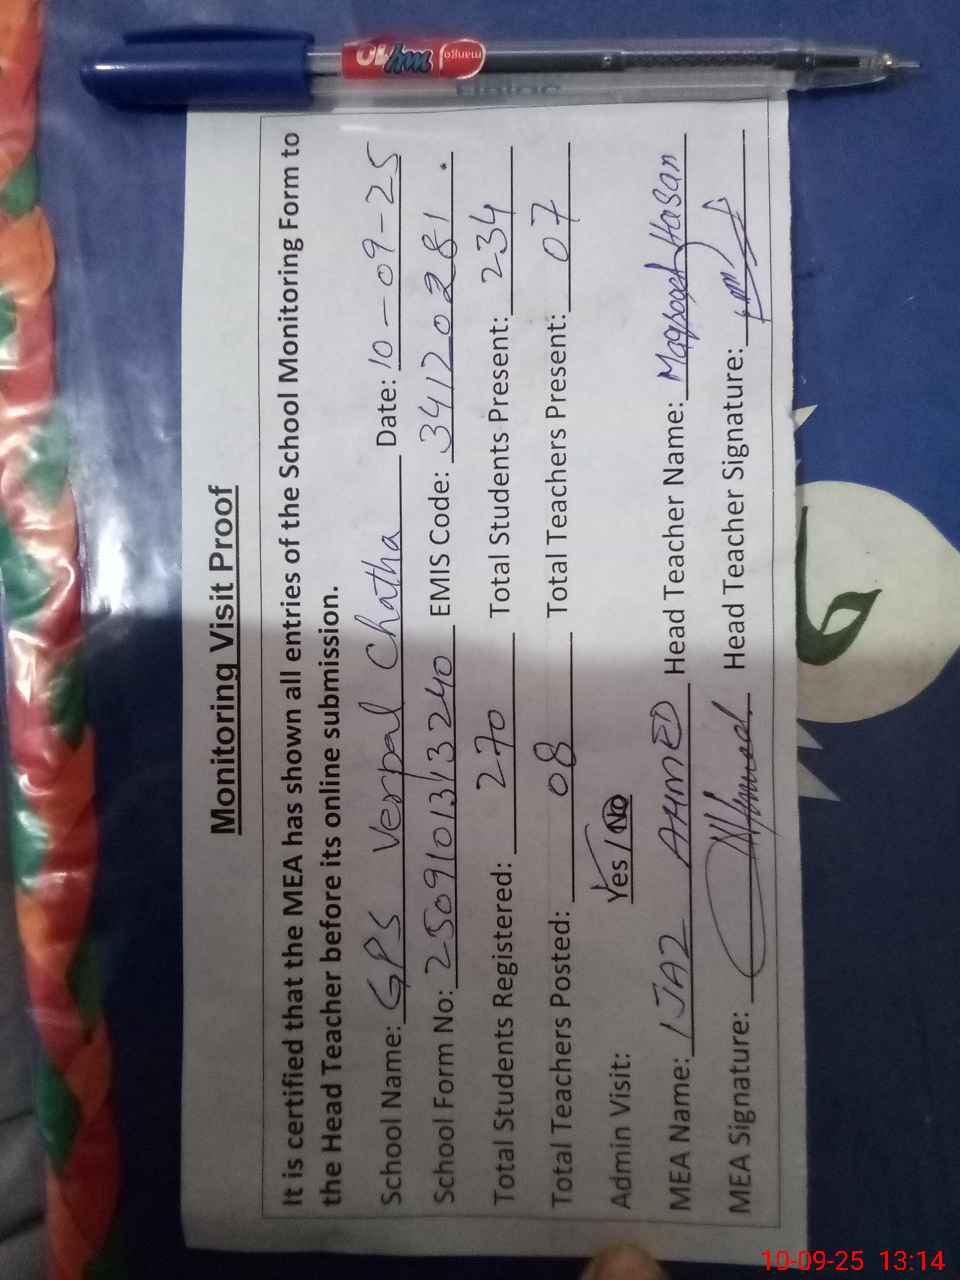 Monitoring Visit Proof
It is certified that the MEA has shown all entries of the School Monitoring Form to
the Head Teacher before its online submission.
School Name: GPS Verpal Chatha Date: 10-09-25
School Form No: 2509101313240 EMIS Code: 34120281.
Total Students Registered: 270 Total Students Present: 234
Total Teachers Posted: 08 Total Teachers Present: 07
Admin Visit: Yes / No
MEA Name: IJAZ AHMED Head Teacher Name: Maqsood Hasan
MEA Signature: Ahmed. Head Teacher Signature:
mango
10-09-25 13:14